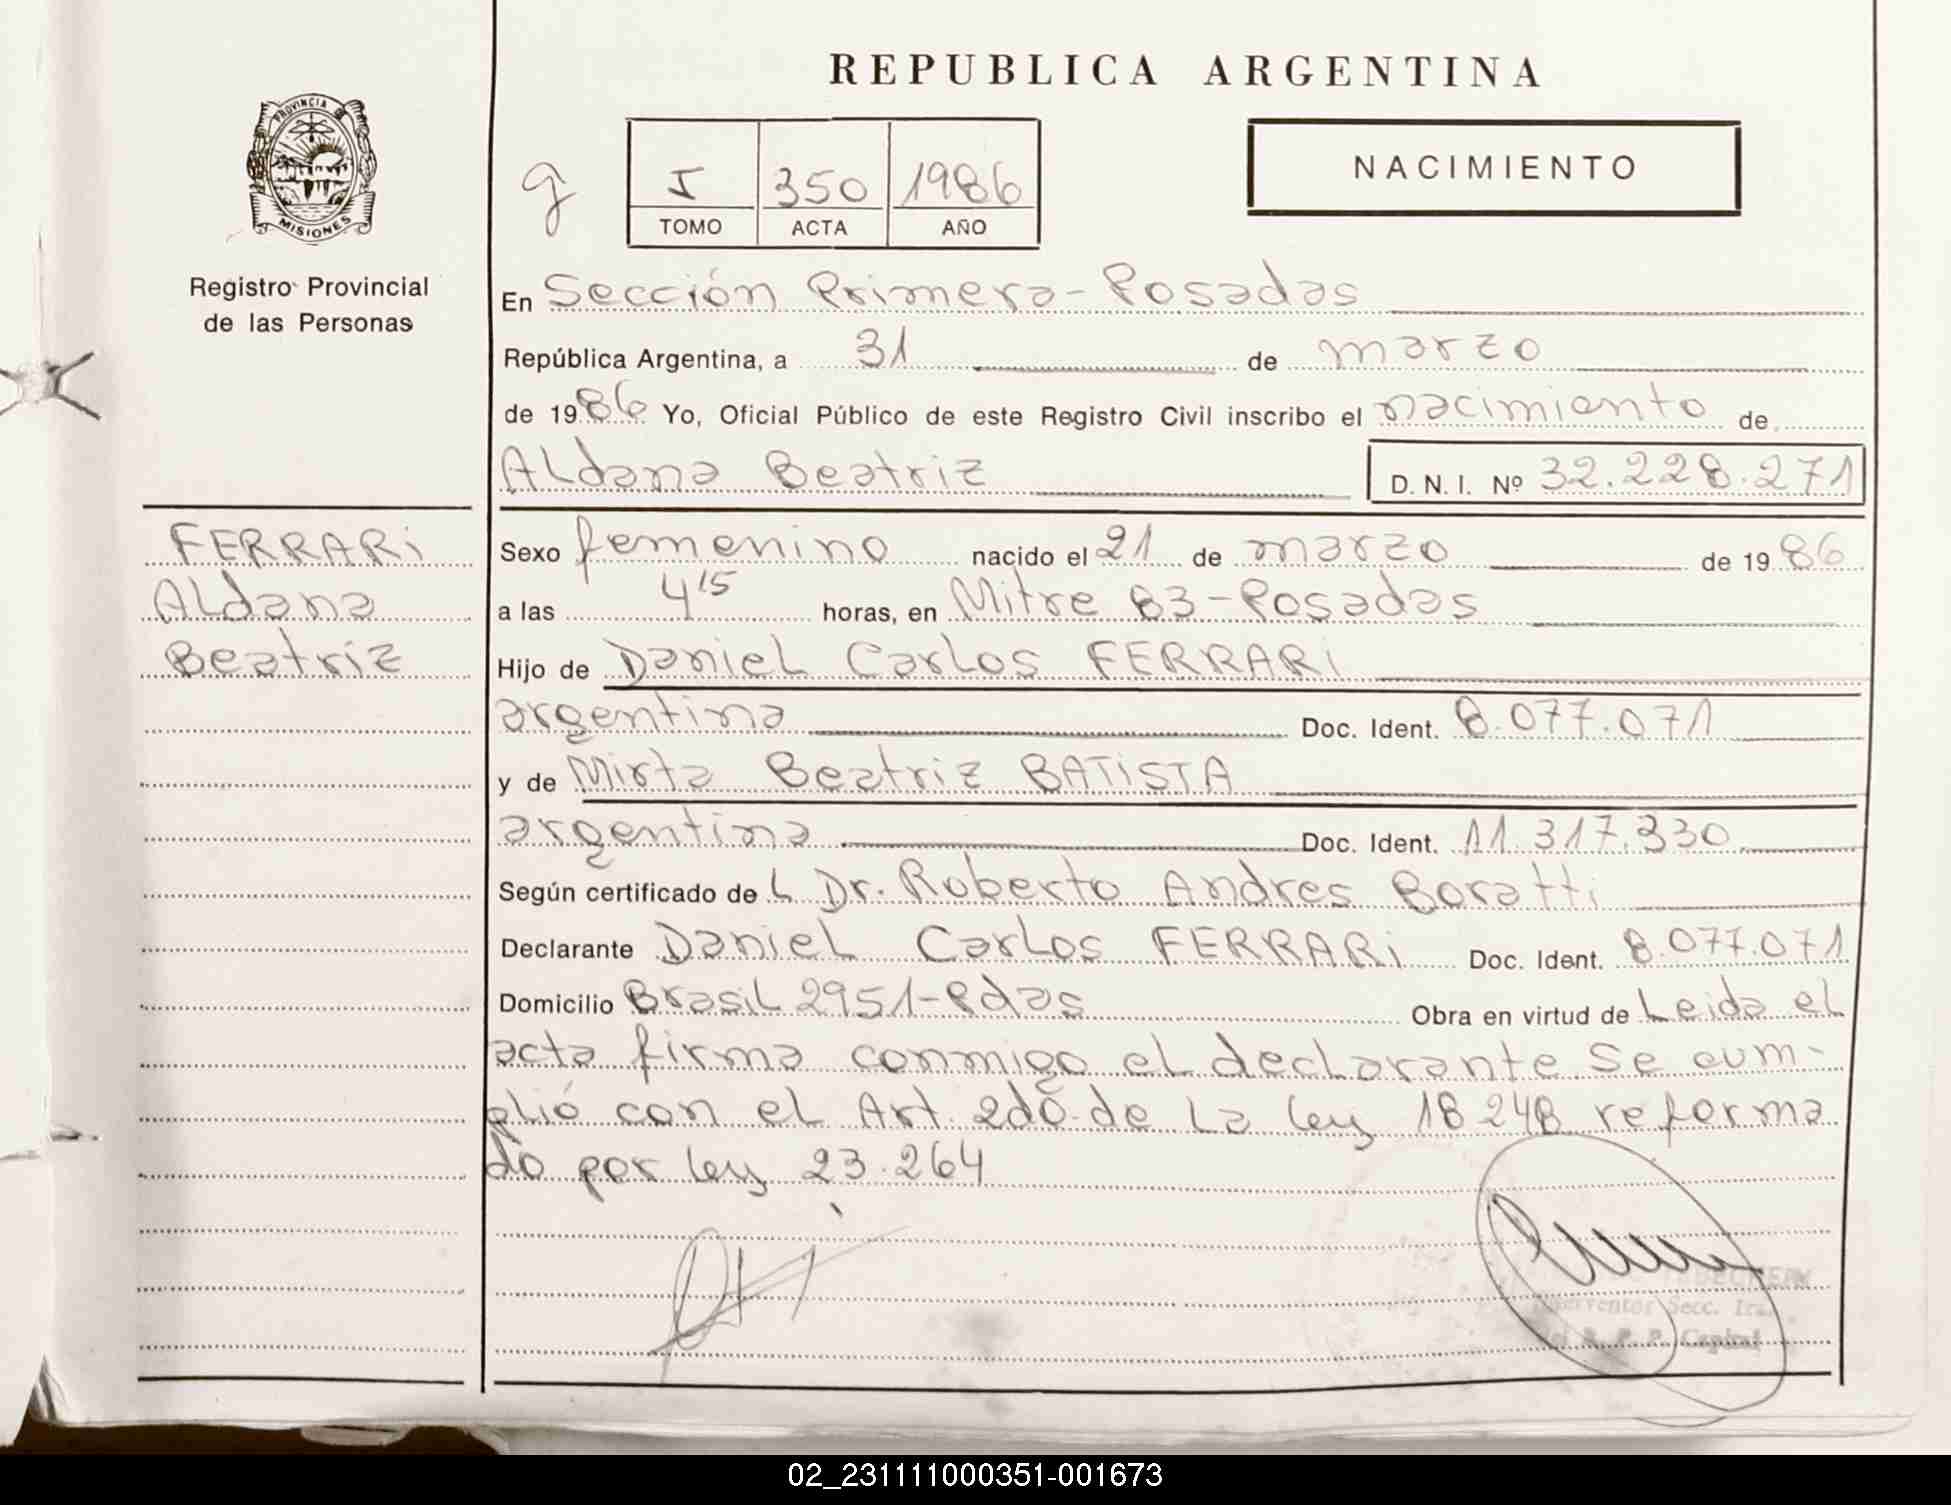 REPUBLICA ARGENTINA
PROVINCIA D
MISIONES
Registro Provincial
de las Personas
g
I 350 1986
TOMO ACTA AÑO
NACIMIENTO
En Sección Primera-Posadas
República Argentina, a 31 de marzo
de 1986 Yo, Oficial Público de este Registro Civil inscribo el nacimiento de
Aldana Beatriz D.N.I. Nº 32.228.271
FERRARI
Aldana
Beatriz
Sexo femenino nacido el 21 de marzo de 1986
a las 4 15 horas, en Mitre 83-Posadas
Hijo de Daniel Carlos FERRARI
argentina Doc. Ident. 8.077.071
y de Mirta Beatriz BATISTA
argentina Doc. Ident. 11.317.330
Según certificado del Dr. Roberto Andres Boratti
Declarante Daniel Carlos FERRARI Doc. Ident. 8.077.071
Domicilio Brasil 2951-Pdas Obra en virtud de Leida el
acta firma conmigo el declarante Se cum-
plió con el Art. 2do de La ley 18248 reforma
do por ley 23.264
Interventor Secc. 1ra.
R. P. P. Capital
02_231111000351-001673